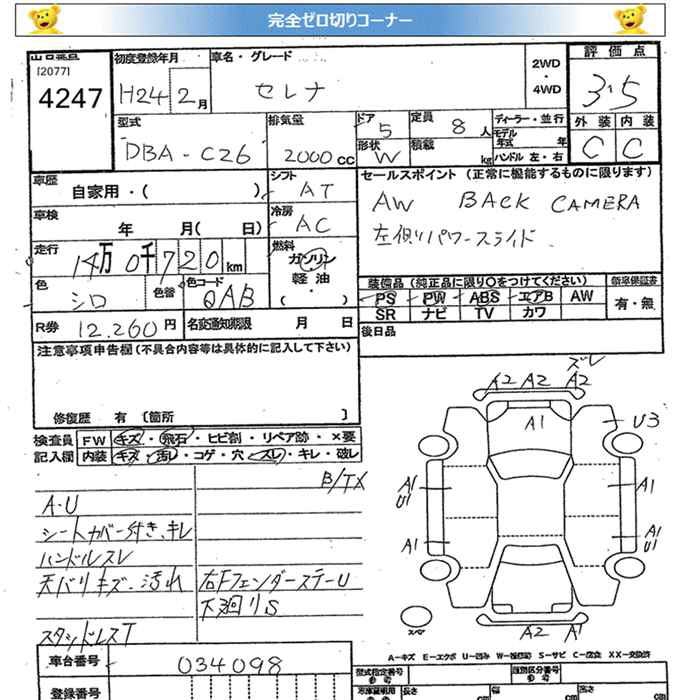 完全ゼロ切りコーナー
[2077]
4247
初度登録年月
H24 2月
車名・グレード
セレナ
2WD
・
4WD
評価点
3.5
型式
DBA-C26
排気量
2000cc
ドア
5
形状
W
定員
8人
積載
kg
ディーラー・並行
モデル
年式 年
ハンドル 左・右
外装 内装
C C
車歴
自家用・( )
シフト
AT
車検
年 月( 日)
冷房
AC
走行
14万0千720km
燃料
ガソリン
軽油
( ・ )
色
シロ
色替
色コード
QAB
R券 12,260円
名変通知期限 月 日
セールスポイント(正常に機能するものに限ります)
AW BACK CAMERA
左側りパワースライド
装備品(純正品に限り○をつけてください)
PS PW ABS エアB AW
SR ナビ TV カワ
新車保証書
有・無
後日品
注意事項申告欄(不具合内容等は具体的に記入して下さい)
修復歴 有 [箇所 ]
検査員
記入欄
FW キズ・飛石・ヒビ割・リペア跡・×要
内装 キズ・汚レ・コゲ・穴・スレ・キレ・破レ
B/TX
A・U
シートカバー付き、キレ
ハンドルスレ
天バリキズ・汚れ
右Fフェンダーステー U
下廻りS
スタッドレスT
ズレ
A2 A2 A2
A1
U3
A1
U1
A1
A1
A1
U1
A2 A1
スペア
A-キズ E-エクボ U-凹み W-補修跡 S-サビ C-腐食 XX-交換済
車台番号
034098
登録番号
型式指定番号
参考
類別区分番号
参考
長さ
cm
幅
cm
高さ
cm